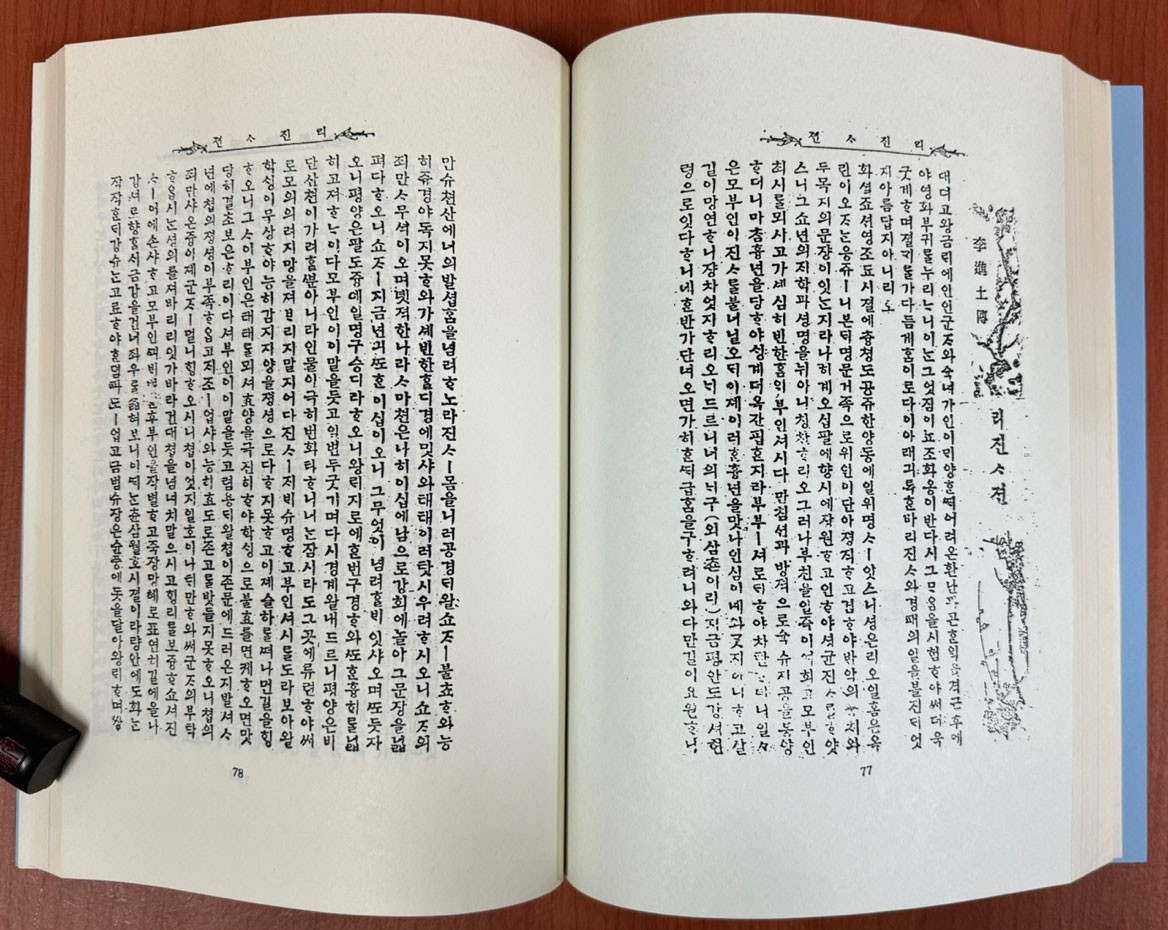 리진ᄉ젼
李進士傳
리진ᄉ젼
대뎌고왕금ᄅᆡ에인인군ᄌᆞ와슉녀가인이ᄆᆡ양ᄒᆞᆫᄯᅢ어려온환난과곤ᄒᆞᆫ익을격근후에
야영화부귀를누리ᄂᆞ니이ᄂᆞᆫ그엇짐이뇨조화옹이반다시그ᄆᆞᄋᆞᆷ을시험ᄒᆞ야써더욱
굿게ᄒᆞ며졀ᄀᆡ를가다듬게홈이로다이아래긔록ᄒᆞᆫ바리진ᄉᆞ와경패의일을볼진ᄃᆡ엇
지아름답지아니리오
화셜죠션영조됴시졀에츙쳥도공쥬한양동에일위명ᄉᆞㅣ잇스니셩은리오일홈은옥
린이오ᄌᆞᄂᆞᆫ응쥬ㅣ니본ᄃᆡ명문거족으로위인이단아졍직ᄒᆞ고겸ᄒᆞ야반악의ᄂᆞᆺ치와
두목지의문쟝이잇ᄂᆞᆫ지라나히계오십팔에향시에쟝원ᄒᆞ고인ᄒᆞ야셩균진ᄉᆞ를ᄒᆞ얏
스니그쇼년의ᄌᆡ학과셩명을뉘아니칭찬ᄒᆞ리오그러나부친을일즉이여희고모부인
최시를뫼시고가셰심히빈한홈ᄋᆡ부인셔시다만침션과방젹으로슉슈지공을봉양
ᄒᆞ더니마ᄎᆞᆷ흉년을당ᄒᆞ야ᄉᆡᆼ계더욱간핍ᄒᆞᆫ지라부부ㅣ셔로ᄃᆡᄒᆞ야차탄ᄒᆞ더니일일
은모부인이진ᄉᆞ를불너닐오ᄃᆡ이제이러ᄒᆞᆫ흉년을맛나인심이녜와ᄀᆞᆺ지아니ᄒᆞ고살
길이망연ᄒᆞ니쟝차엇지ᄒᆞ리오ᄂᆡ드르니너의ᄂᆡ구(외삼촌이라)지금평안도강셔현
령으로잇다ᄒᆞ니네ᄒᆞᆫ반가단녀오면가히ᄒᆞᆫᄯᅢ급홈을구ᄒᆞ려니와다만길이요원ᄒᆞ니
77
리진ᄉ젼
만슈쳔산에너의발셥홈을념려ᄒᆞ노라진ᄉᆞㅣ몸을니러공경ᄃᆡ왈쇼ᄌᆞㅣ불쵸ᄒᆞ와능
히쥬경야독지못ᄒᆞ와가셰빈한홈디경에밋샤와태태이러탓시우려ᄒᆞ시오니쇼ᄌᆞ의
죄만ᄉᆞ무셕이오며녯젹한나라ᄉᆞ마쳔은나히이십에남으로강회에놀아그문쟝을넓
펴다ᄒᆞ오니쇼ᄌᆞㅣ지금년긔ᄯᅩᄒᆞᆫ이십이오니그무엇이념려ᄒᆞᆯ비잇샤오며ᄯᅩ듯자
오니평양은팔도즁에일명구승디라ᄒᆞ오니왕ᄅᆡ지로에ᄒᆞᆫ번구경ᄒᆞ와ᄯᅩᄒᆞᆫ흉회를넓
히고져ᄒᆞᄂᆞ이다모부인이이말을듯고일변두굿기며다시경계왈내드르니평양은비
단산쳔이가려홀ᄲᅮᆫ아니라인물이극히번화타ᄒᆞ니너ᄂᆞᆫ잠시라도그곳에류련ᄒᆞ야써
로모의의려지망을져ᄇᆞ리지말지어다진ᄉᆞㅣᄌᆡᄇᆡ슈명ᄒᆞ고부인셔시를도라보아왈
학ᄉᆡᆼ이무상ᄒᆞ야능히감지지양을졍셩으로다ᄒᆞ지못ᄒᆞ고이제슬하를ᄯᅥ나먼길을ᄒᆡᆼ
ᄒᆞ오니그ᄉᆞ이부인은태태를뫼셔효양을극진히ᄒᆞ야학ᄉᆡᆼ으로불효를면케ᄒᆞ오면맛
당히결초보은ᄒᆞ리이다셔부인이이말을듯고렴용ᄃᆡ왈쳡이존문에드러온지발셔ᄉᆞ
년에쳡의졍셩이부족ᄒᆞ옵고ᄌᆡ조ㅣ업샤와능히효도로존고를밧들지못ᄒᆞ오니쳡의
죄만샤온즁이제군ᄌᆞㅣ멀니ᄒᆡᆼᄒᆞ오시니쳡이엇지일호이나ᄐᆡ만ᄒᆞ와써군ᄌᆞ의부탁
ᄒᆞ옵시ᄂᆞᆫ셩의를져바리리잇가바라건대쳡을념녀치말으시고ᄒᆡᆼ리를보즁ᄒᆞ쇼셔진
ᄌᆞᆨᄌᆞᆨᄒᆞᆫᄃᆡ강슈ᄂᆞᆫ고료ᄒᆞ야
78